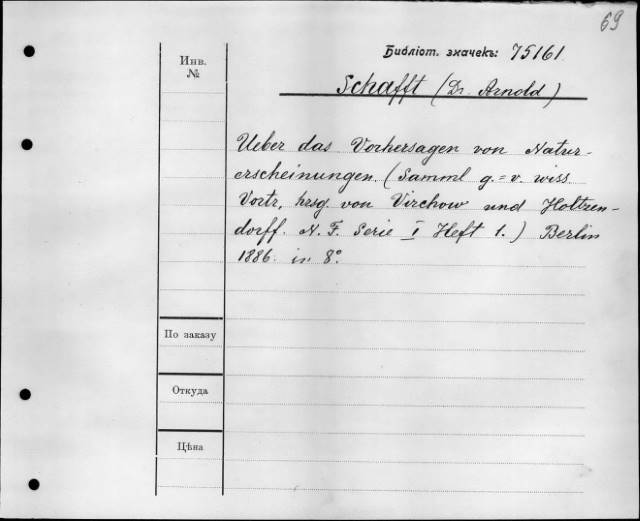 69
Библіот. значекъ: 75161.
Инв.
№
Schafft (Dr. Arnold)
Ueber das Vorhersagen von Natur-
erscheinungen. (Samml g.=v. wiss
Vortr, hrsg. von Virchow und Holtzen-
dorff. N. F. Serie I Heft 1.) Berlin
1886. in 8°.
По заказу
Откуда
Цѣна